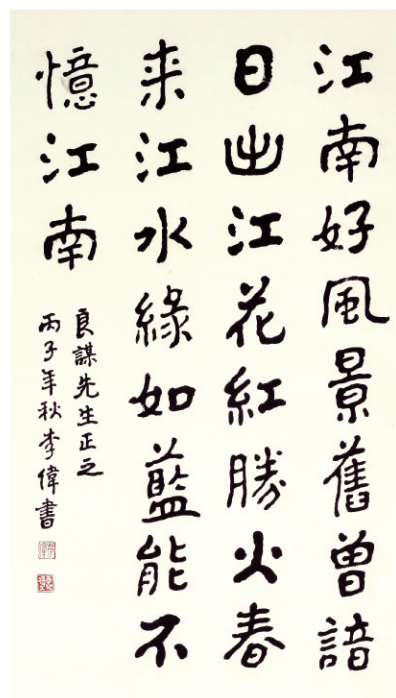 江南好風景舊曾諳
日出江花紅勝火春
来江水綠如藍能不
憶江南
良謀先生正之
丙子年秋李偉書